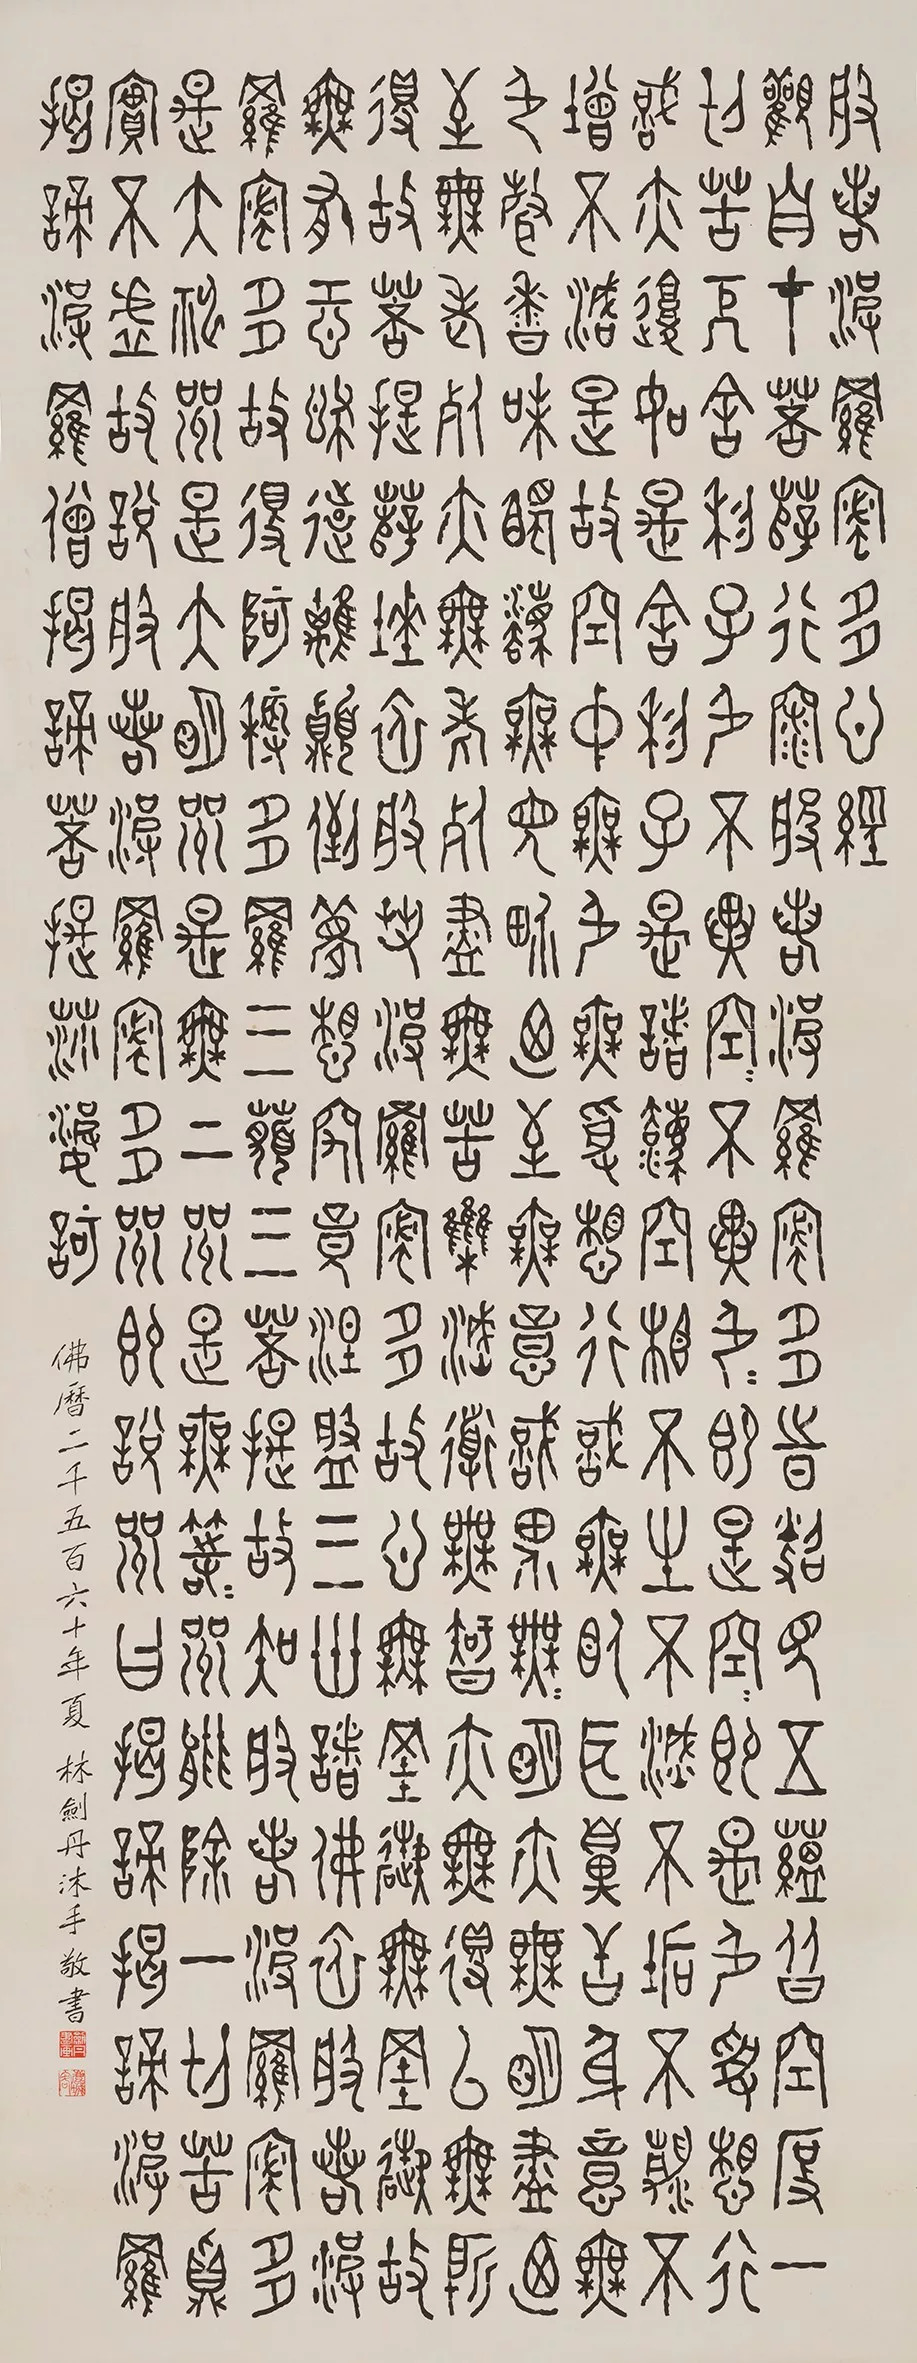 般若波羅蜜多心經
觀自在菩薩行深般若波羅蜜多時照見五蘊皆空度一
切苦厄舍利子色不異空〻不異色〻即是空〻即是色受想行
識亦復如是舍利子是諸法空相不生不滅不垢不淨不
增不減是故空中無色無受想行識無眼耳鼻舌身意無
色聲香味觸法無眼界乃至無意識界無〻明亦無明盡乃
至無老死亦無老死盡無苦集滅道無智亦無得以無所
得故菩提薩埵依般若波羅蜜多故心無罣礙無罣礙故
無有恐怖遠離顛倒夢想究竟涅盤三世諸佛依般若波
羅蜜多故得阿耨多羅三藐三菩提故知般若波羅蜜多
是大神咒是大明咒是無上咒是無等〻咒能除一切苦真
實不虛故說般若波羅蜜多咒即說咒曰揭諦揭諦波羅
揭諦波羅僧揭諦菩提莎婆訶
佛曆二千五百六十年夏 林劍丹沐手敬書